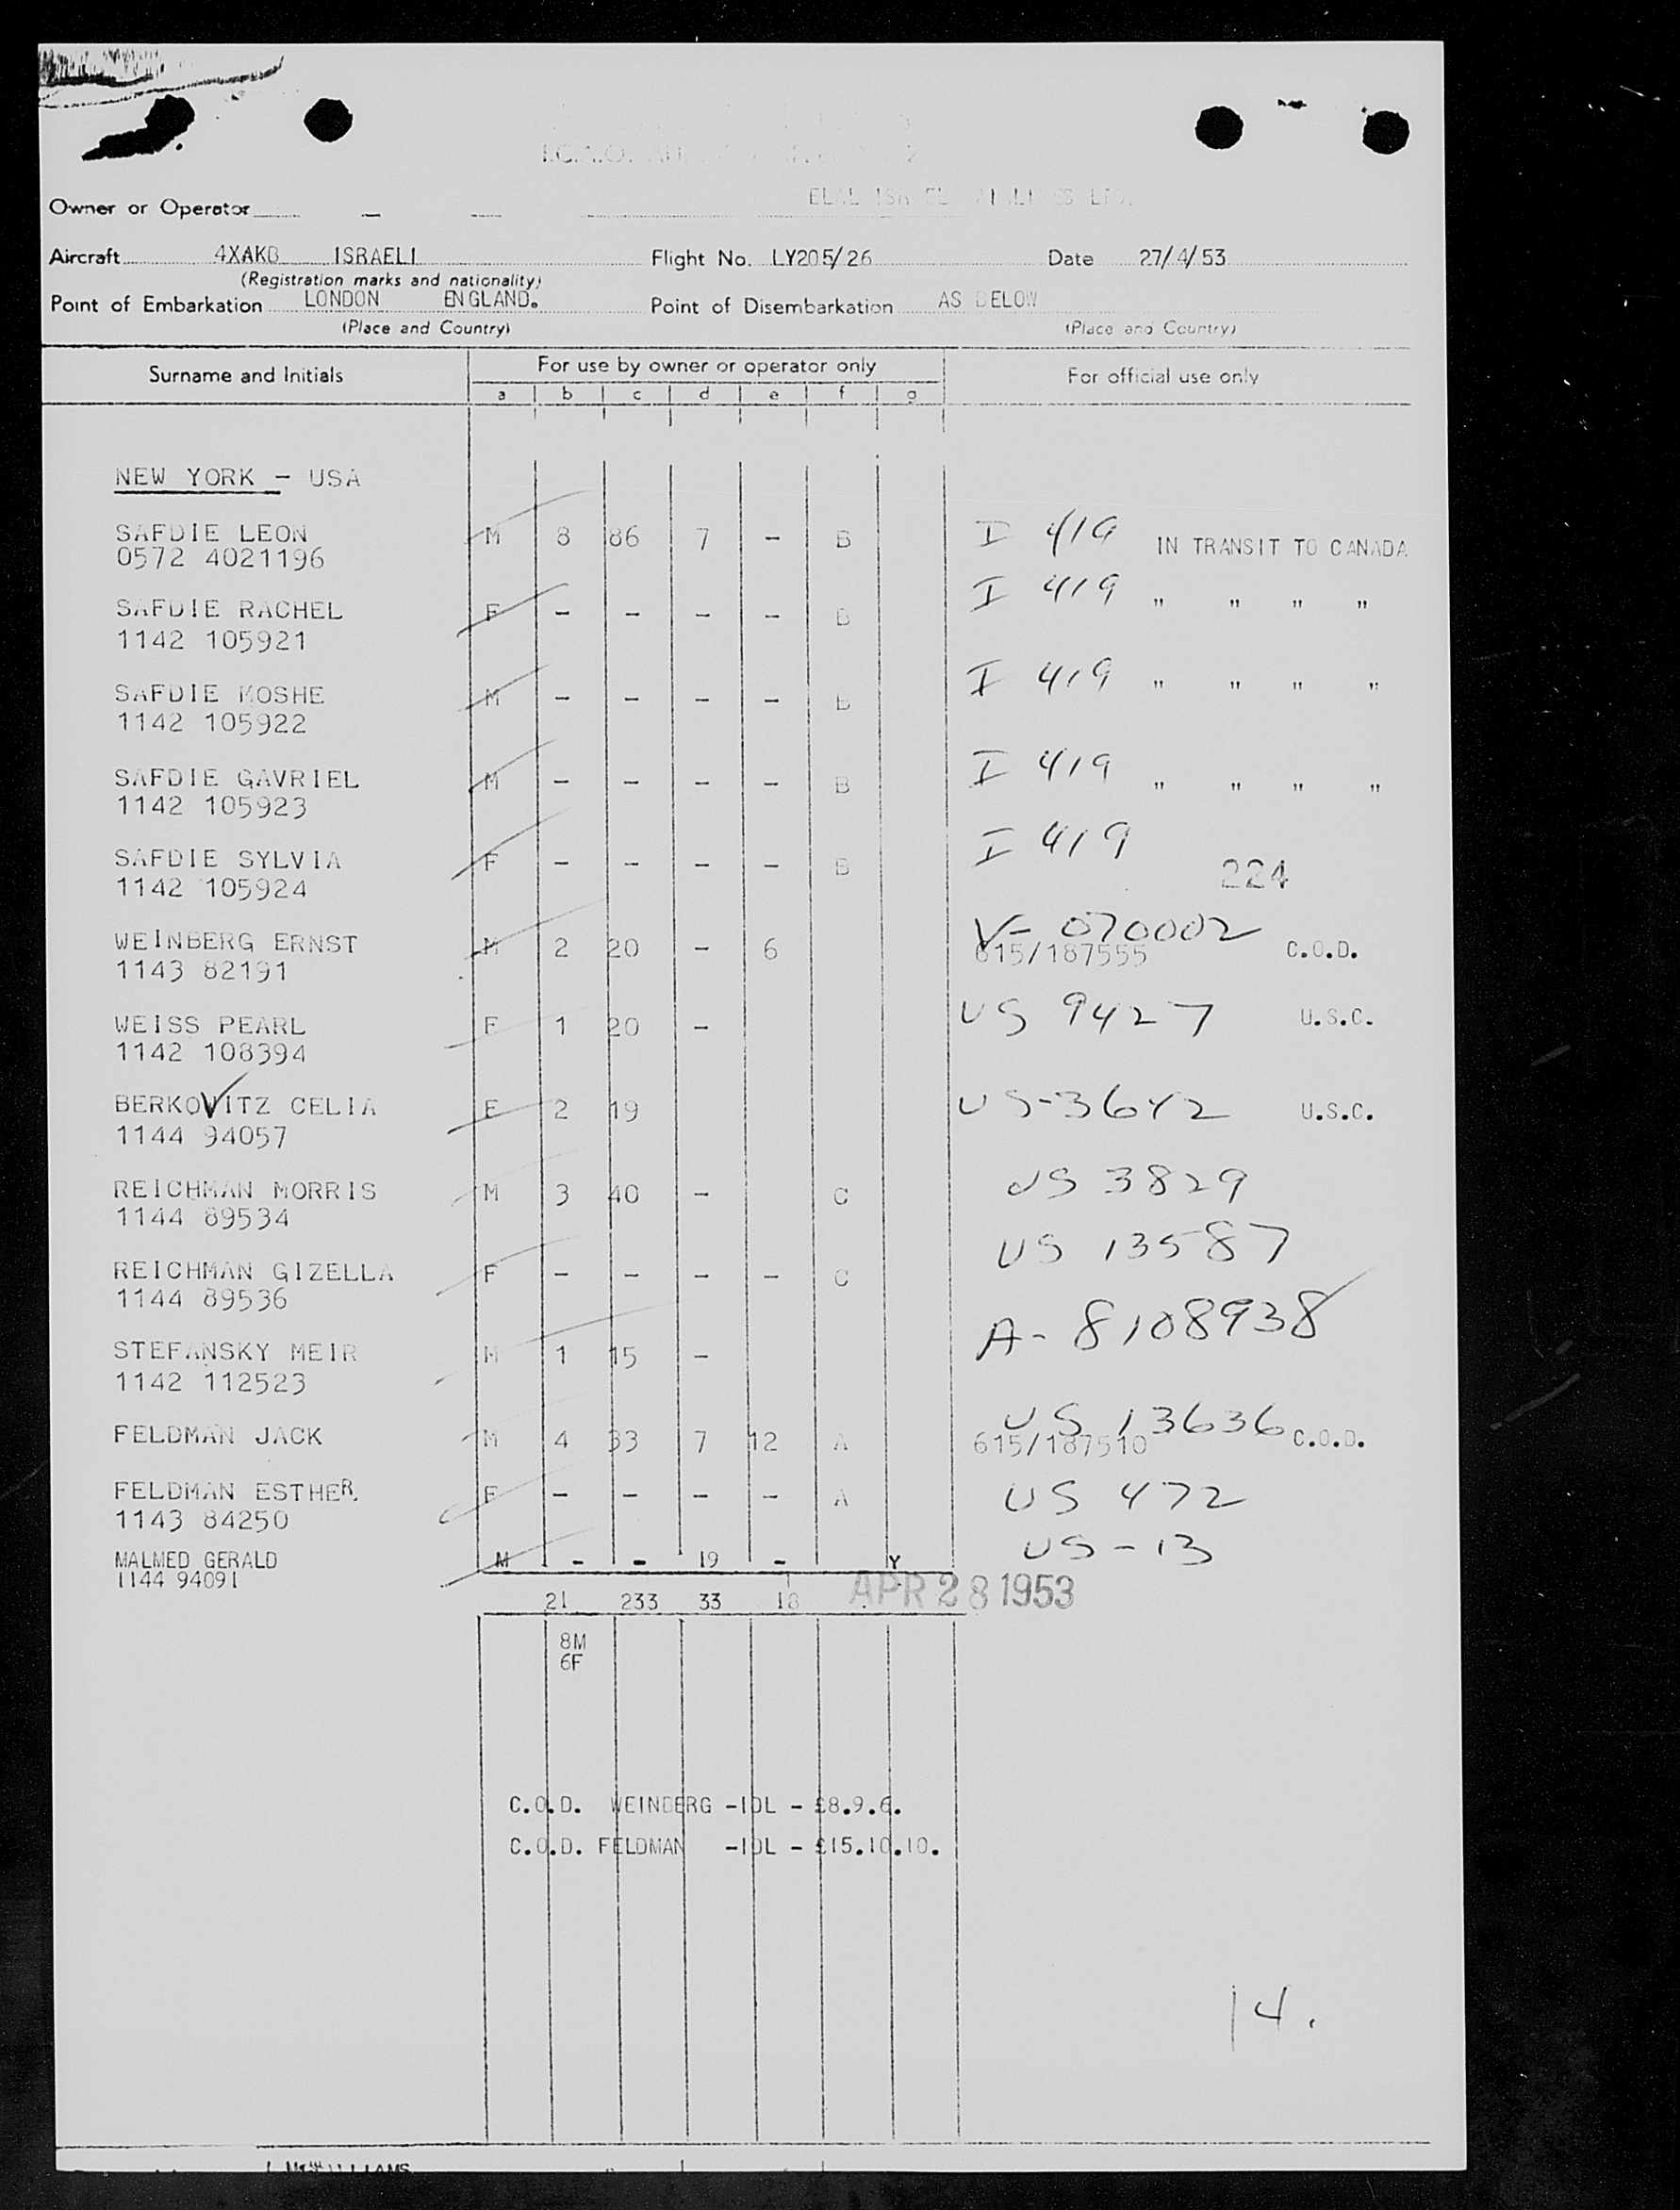 I.C.A.O.
Owner or Operator
Aircraft 4XAKB ISRAELI Flight No. LY205/26 Date 27/4/53
(Registration marks and nationality)
Point of Embarkation LONDON ENGLAND. Point of Disembarkation AS BELOW
(Place and Country) (Place and Country)
Surname and Initials For use by owner or operator only For official use only
a b c d e f g
NEW YORK - USA
SAFDIE LEON M 8 86 7 - B I 419 IN TRANSIT TO CANADA
0572 4021196
SAFDIE RACHEL F - - - - B I 419 " " " "
1142 105921
SAFDIE MOSHE M - - - - B I 419 " " " "
1142 105922
SAFDIE GAVRIEL M - - - - B I 419 " " " "
1142 105923
SAFDIE SYLVIA F - - - - B I 419
1142 105924 224
WEINBERG ERNST M 2 20 - 6 V- 070002
1143 82191 615/187555 C.O.D.
WEISS PEARL F 1 20 - US 9427 U.S.C.
1142 108394
BERKOWITZ CELIA F 2 19 US-3642 U.S.C.
1144 94057
REICHMAN MORRIS M 3 40 - C US 3829
1144 89534
REICHMAN GIZELLA F - - - - C US 13587
1144 89536
STEFANSKY MEIR M 1 15 - A- 8108938
1142 112523
FELDMAN JACK M 4 33 7 12 A US 13636
615/187510 C.O.D.
FELDMAN ESTHER. F - - - - A US 472
1143 84250
MALMED GERALD M - - 19 - Y US-13
1144 94091
21 233 33 18 APR 28 1953
8M
6F
C.O.D. WEINBERG -IDL - £8.9.6.
C.O.D. FELDMAN -IDL - £15.10.10.
14.